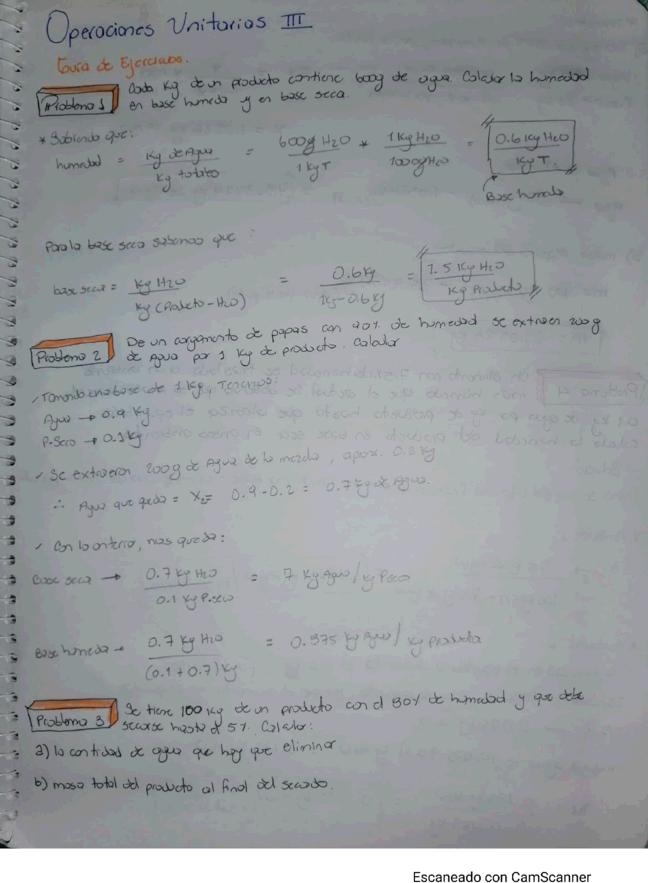 Operaciones Unitarios III
Guía de Ejercicios.
Problema 1
Cada Kg de un producto contiene 600g de agua. Calcular la humedad
en base humeda y en base seca.
* Sabiendo que:
humedad = Kg de Agua / Kg totales = 600g H2O / 1 Kg T * 1 Kg H2O / 1000g H2O = 0.6 Kg H2O / Kg T.
Base humeda
Para la base seca sabemos que :
base seca = Kg H2O / Kg (Producto - H2O) = 0.6 Kg / 1Kg - 0.6 Kg = 1.5 Kg H2O / Kg Producto
Problema 2
De un cargamento de papas con 90% de humedad se extraen 200g
de Agua por 1 Kg de producto. Calcular
✓ Tomando una base de 1 Kg,
Agua → 0.9 Kg
P. Seco → 0.1 Kg
✓ Se extraeron 200g de Agua de la mezcla, aprox. 0.8 Kg
∴ Agua que queda = X2 = 0.9 - 0.2 = 0.7 Kg de Agua.
✓ Con lo anterior, nos queda:
Base seca → 0.7 Kg H2O / 0.1 Kg P. seco = 7 Kg Agua / Kg P seco
Base humeda → 0.7 Kg H2O / (0.1 + 0.7) Kg = 0.875 Kg Agua / Kg Producto
Problema 3
Se tiene 100 Kg de un producto con el 80% de humedad y que debe
secarse hasta el 5%. Calcular:
a) la cantidad de agua que hay que eliminar
b) masa total del producto al final del secado.
Escaneado con CamScanner